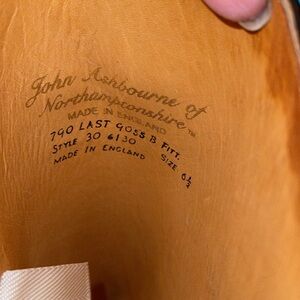 John Ashbourne of
Northamptonshire ™
MADE IN ENGLAND
790 LAST GOSS B FITT.
STYLE 30 6130 SIZE 6½
MADE IN ENGLAND